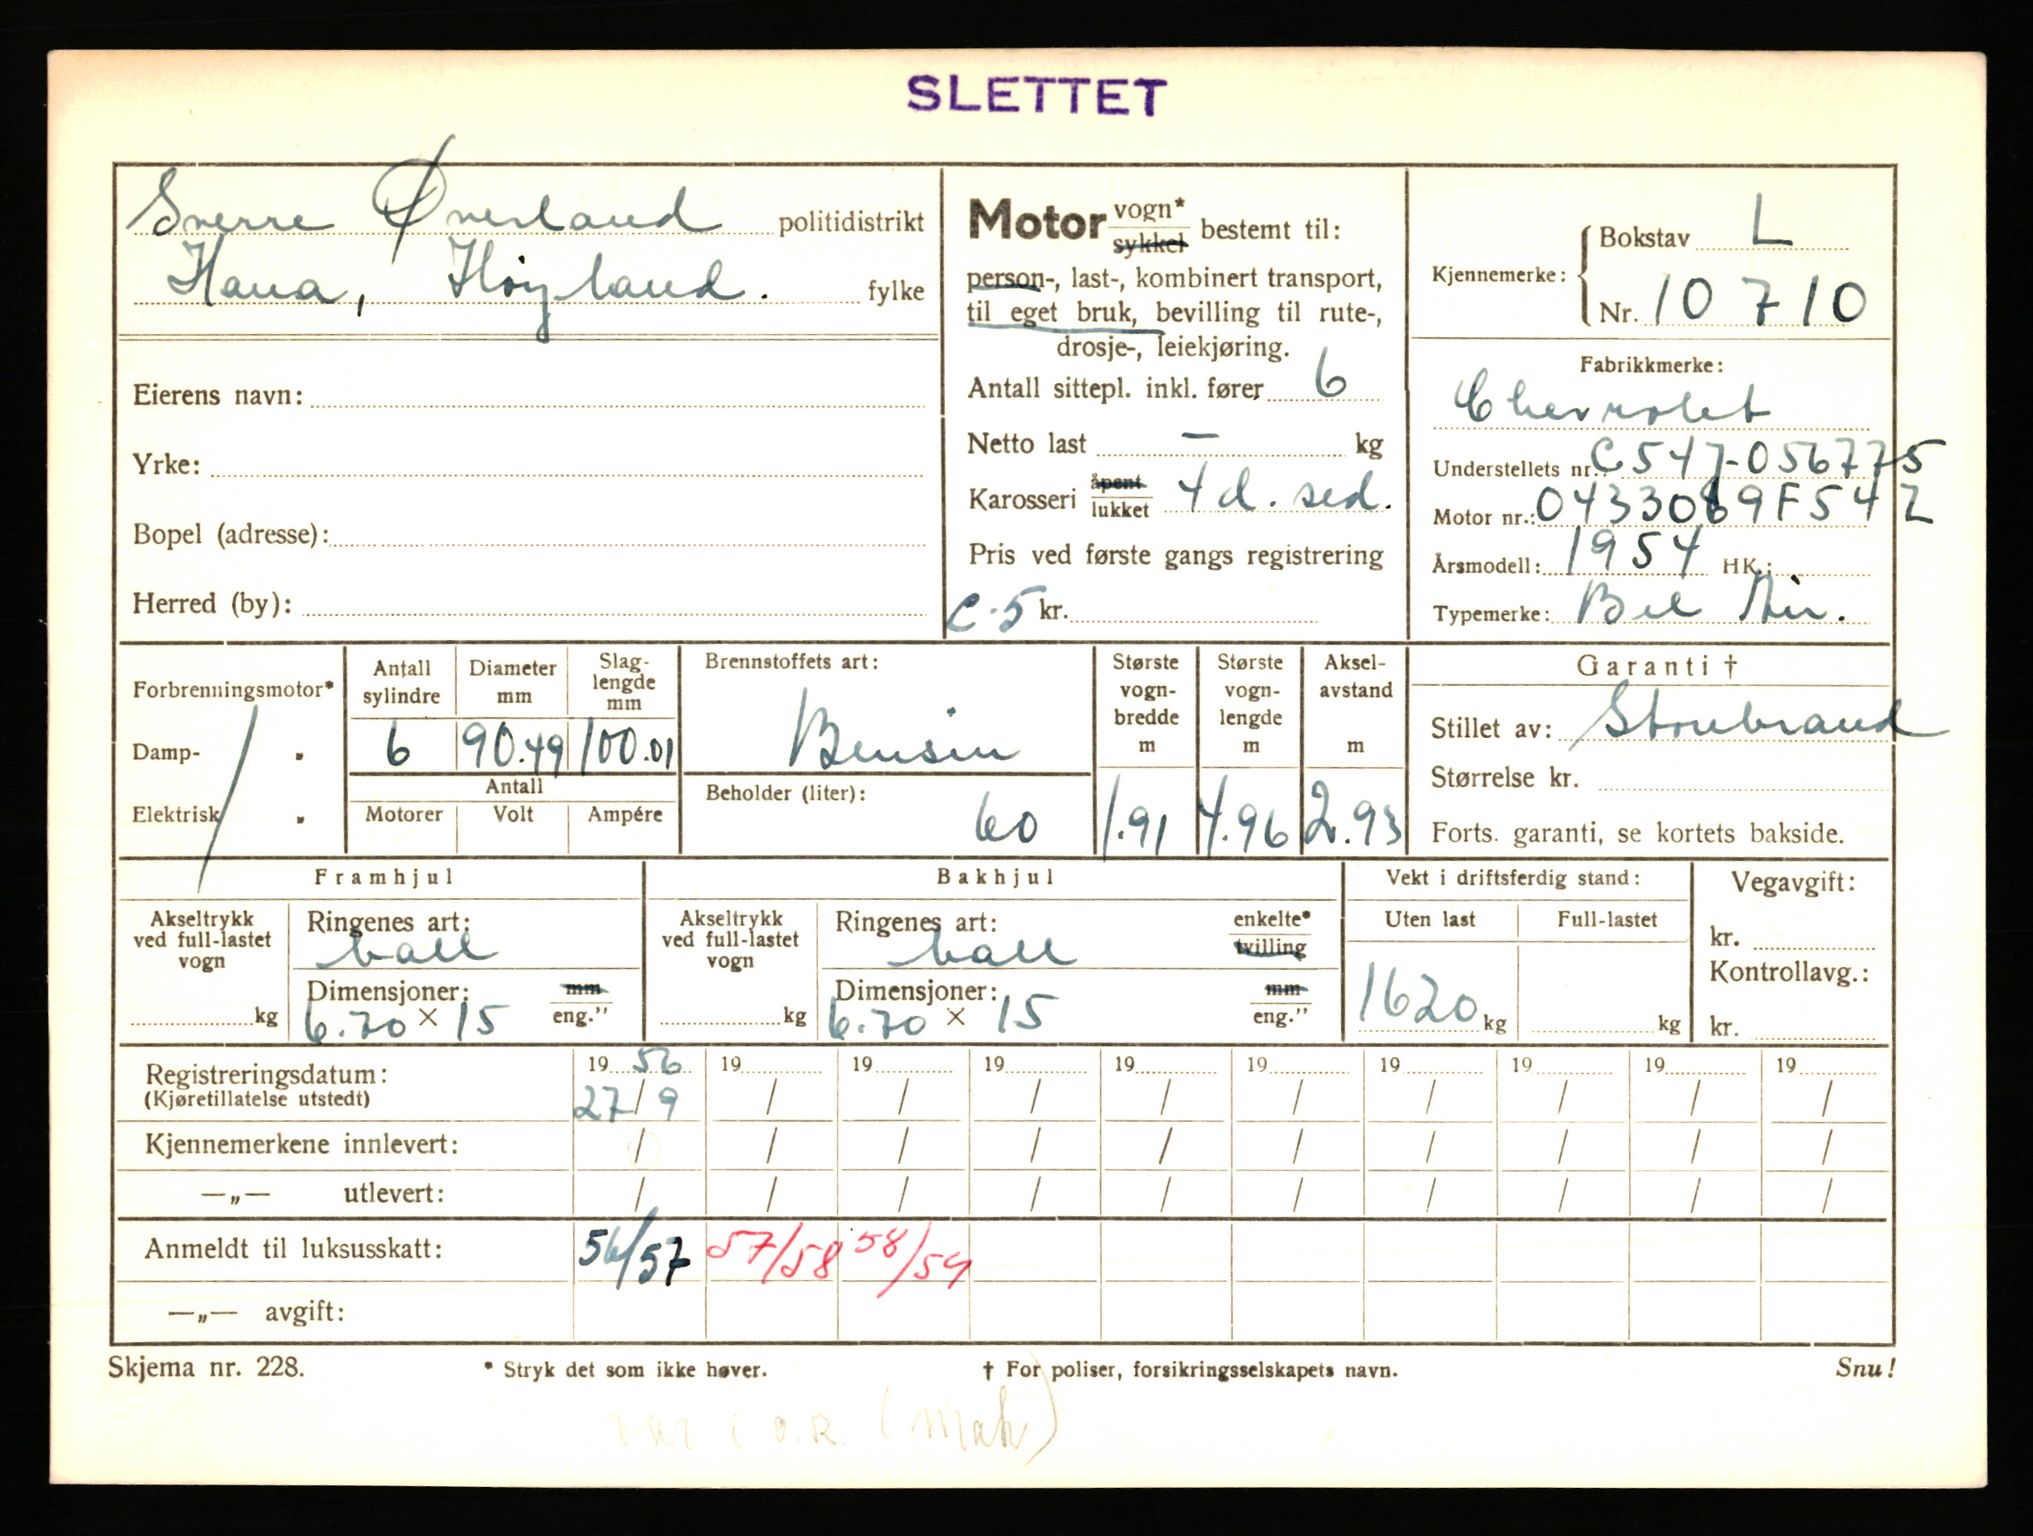 SLETTET
Sverre Øverland politidistrikt
Hana, Høyland. fylke
Eierens navn:
Yrke:
Bopel (adresse):
Herred (by):
Motor vogn* sykkel bestemt til:
person-, last-, kombinert transport,
til eget bruk, bevilling til rute-,
drosje-, leiekjøring.
Antall sittepl. inkl. fører 6
Netto last — kg
Karosseri åpent lukket 4 d. sed.
Pris ved første gangs registrering
C-5 kr.
Kjennemerke: Bokstav L
Nr. 10710
Fabrikkmerke:
Chevrolet
Understellets nr. C547-056775
Motor nr.: 0433069F54Z
Årsmodell: 1954 HK.:
Typemerke: Bel Air.
Forbrenningsmotor*
Damp- "
Elektrisk "
Antall sylindre Diameter mm Slag-lengde mm
6 90.49 100.01
Antall
Motorer Volt Ampére
Brennstoffets art:
Bensin
Beholder (liter):
60
Største vogn-bredde m Største vogn-lengde m Aksel-avstand m
1.91 4.96 2.93
Garanti †
Stillet av: Storebrand
Størrelse kr.
Forts. garanti, se kortets bakside.
Framhjul
Akseltrykk ved full-lastet vogn
kg
Ringenes art:
ball
Dimensjoner: mm
6.70 × 15 eng."
Bakhjul
Akseltrykk ved full-lastet vogn
kg
Ringenes art: enkelte*
ball tvilling
Dimensjoner: mm
6.70 × 15 eng."
Vekt i driftsferdig stand:
Uten last Full-lastet
1620 kg kg
Vegavgift:
kr.
Kontrollavg.:
kr.
Registreringsdatum: 19 56 19 19 19 19 19 19 19 19 19
(Kjøretillatelse utstedt) 27/9 / / / / / / / / /
Kjennemerkene innlevert: / / / / / / / / / /
—„— utlevert: / / / / / / / / / /
Anmeldt til luksusskatt: 56/57 57/58 58/59
—„— avgift:
Skjema nr. 228. * Stryk det som ikke høver. † For poliser, forsikringsselskapets navn. Snu!